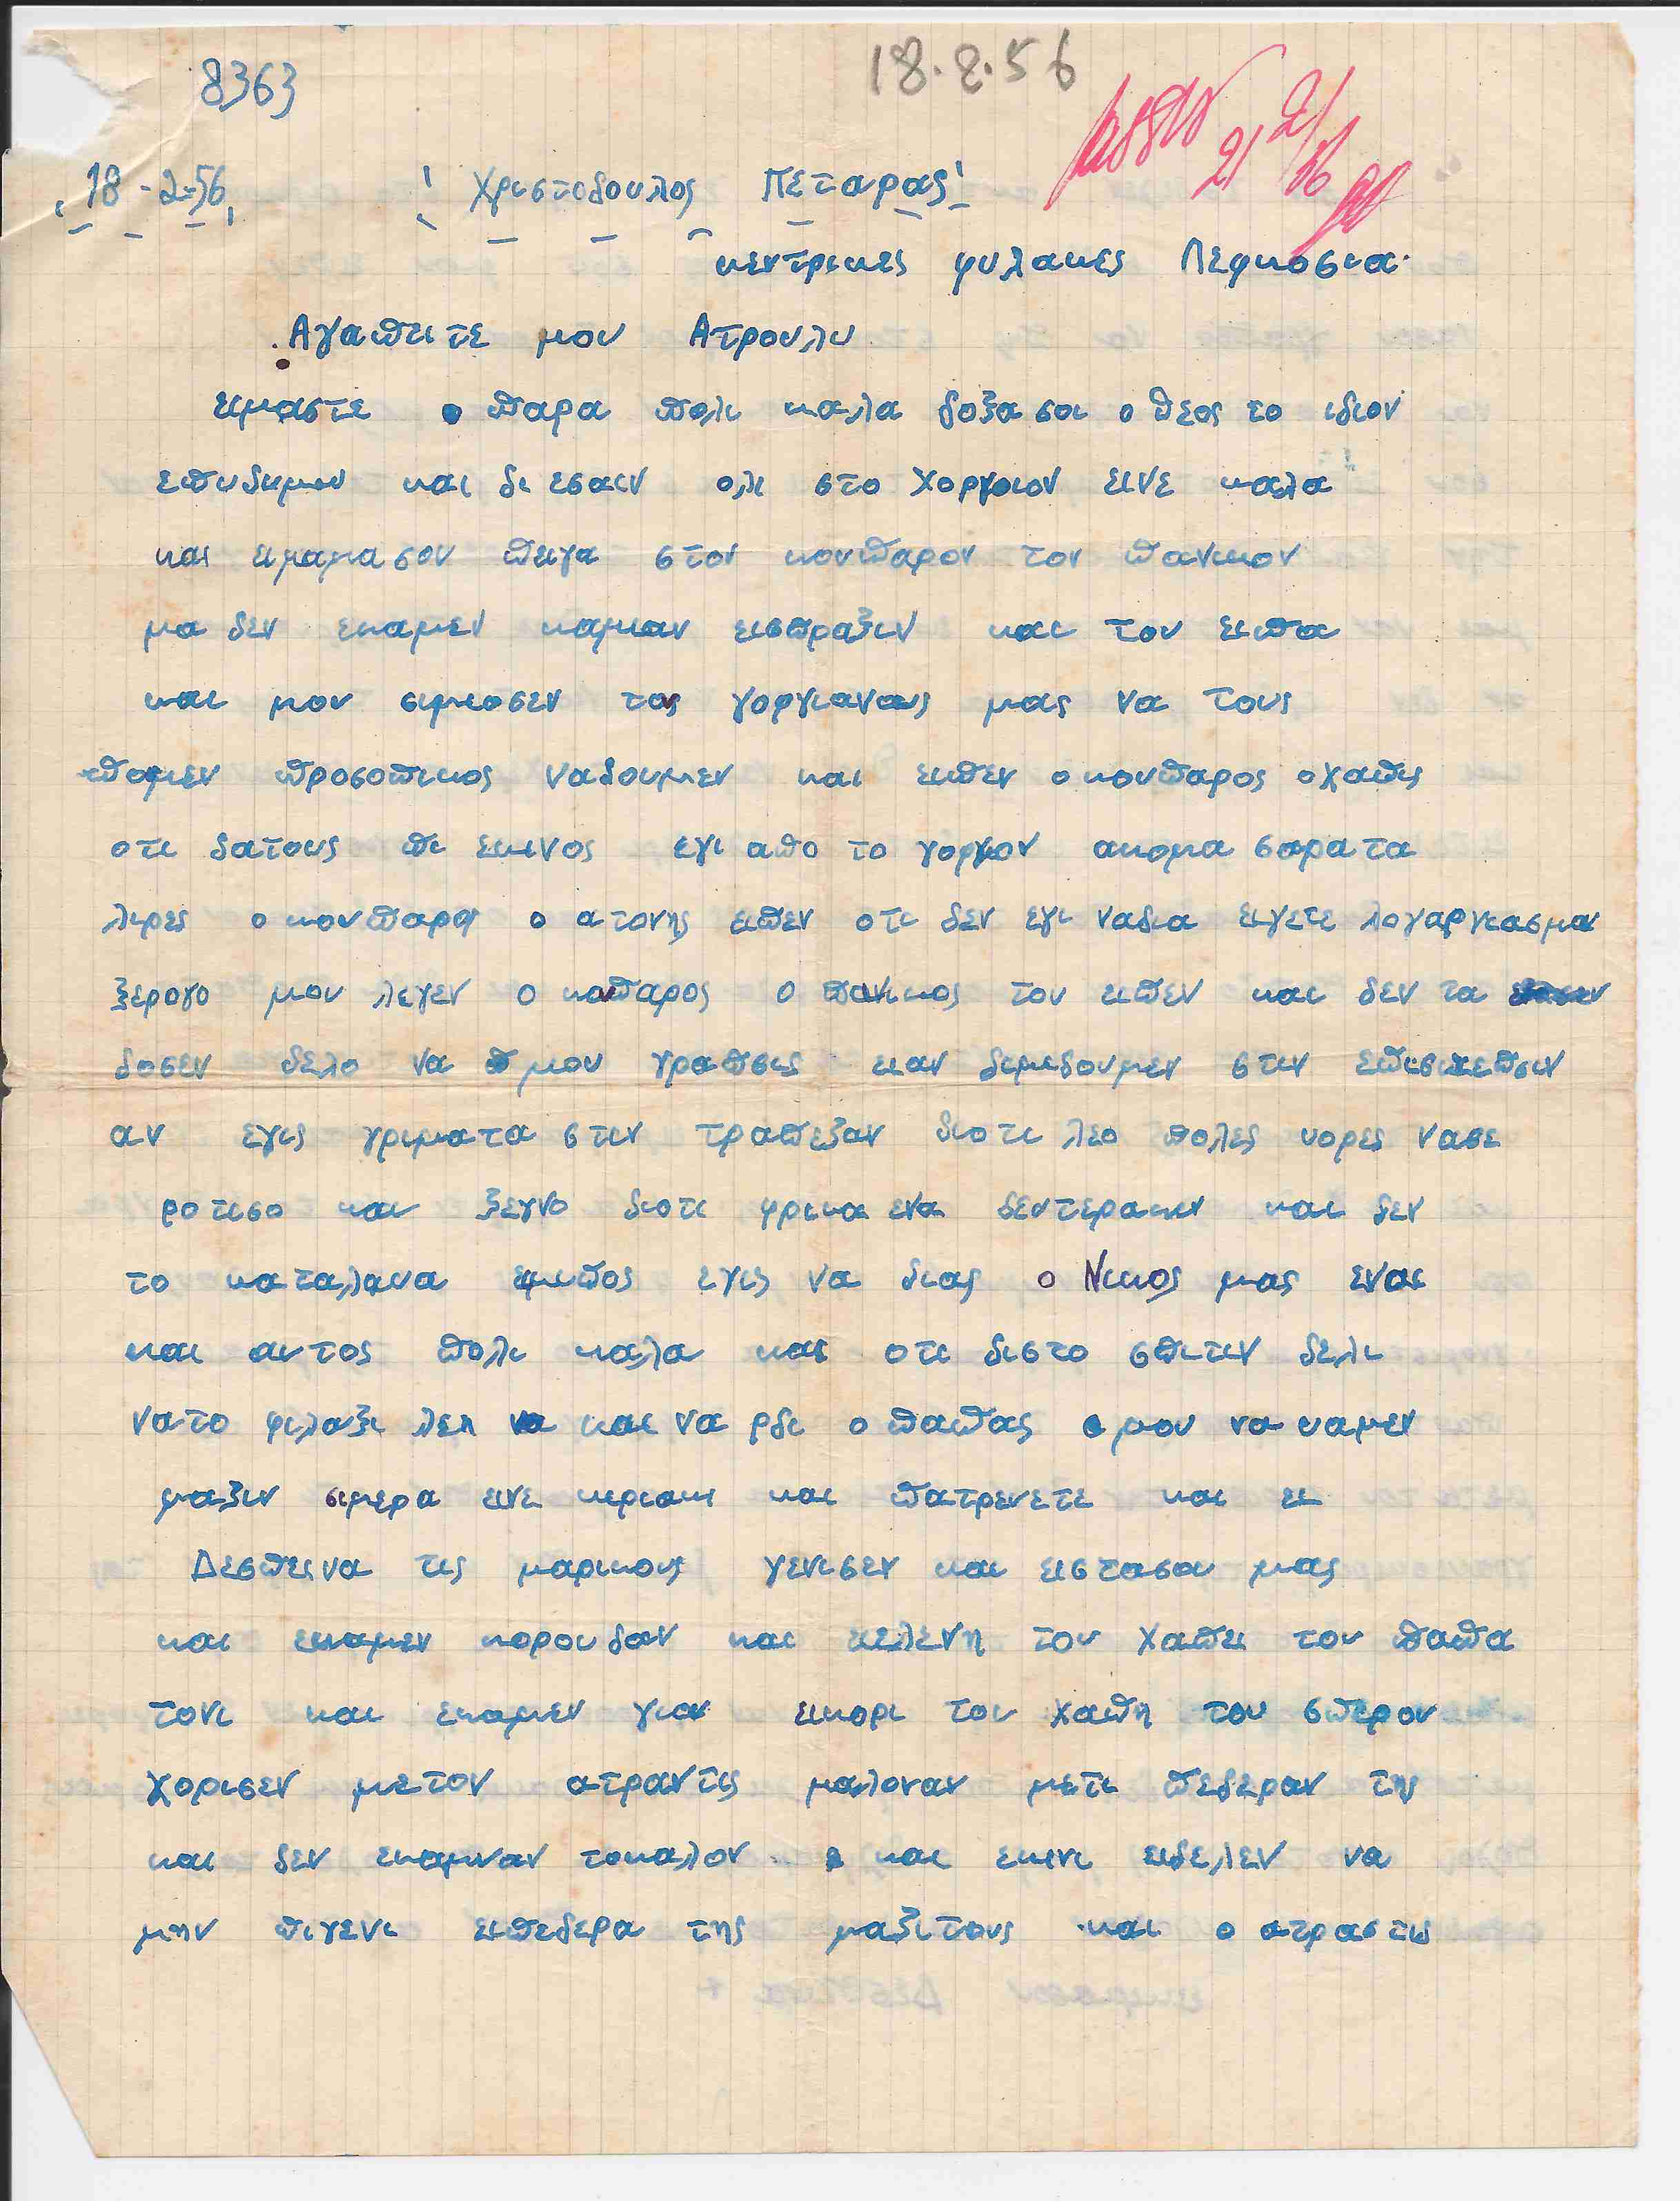 8363
18.2.56
18-2-56 Χριστοδουλος Πεταρας
κεντρικες φυλακες Λεφκοσια
Αγαπιτε μου Ατρουλι
ειμαστε παρα πολι καλα δοξα σοι ο θεος το ιδιον
επιθιμου και δι εσαιν ολι στο χοργιον εινε καλα
και ειμαμα σου πειγα στον κουπαρον τον πανικον
μα δεν εκαμεν καμιαν εισπραξιν και του ειπα
και μου σιμιοσεν τος γοργιανους μας να τους
πομεν προσοπικος ναδουμεν και ειπεν ο κουπαρος ο χαπις
οτι θατους πι εκινος εχι απο το γοργιον ακομα σαρατα
λιρες ο κουπαρος ο ατονης ειπεν οτι δεν εχι ναδια ειχετε λογαργιασμα
ξερογο μου λεγεν ο κουπαρος ο πανικος του ειπεν και δεν τα
δοσεν θελο να μου γραπσις ειαν θιμεθουμεν στιν επισκεπσιν
αν εχις χριματα στιν τραπεζαν διοτι λεο πολες φορες νασε
ροτισο και ξεχνο διοτι φρικα ενα δεντερακιν και δεν
το καταλαβα εμιπος εχις να διας ο Νικος μας εναι
και αυτος πολι καλα και οτι διστο σπιτιν θελι
νατο φιλαξι λεη και να ρθι ο παπας μου να φαμεν
μαζιν σιμερα εινε κιριακι και πατρευετε και ει
Δεσπεινα τις μαρικους γενισεν και ειστασου μας
και εκαμεν κορουδαν και ειελενη του χαπει του παπα
τονι και εκαμεν γιον εικορι του χαπη του σπερου
χορισεν μετον ατραντις μαλοναν μετι πεθεραν της
και δεν εκαμναν τοκαλον και εκινι ειθελεν να
μην πιγενι ειπεθερα της μαζιτους και ο ατραστις